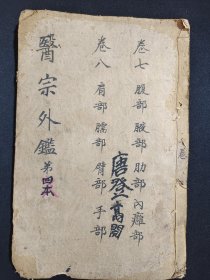 卷七 腹部 腋部 肋部 內癰部
唐登高閱
卷八 肩部 臑部 臂部 手部
醫宗外鑑 第四本